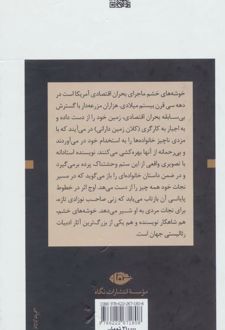 خوشه‌های خشم ماجرای بحران اقتصادی آمریکا است در
دهه سی قرن بیستم میلادی. هزاران مزرعه‌دار با گسترش
بی‌سابقه بحران اقتصادی، زمین خود را از دست داده و
به اجبار به کارگری (کلان زمین دارانی) در می‌آیند که با
مزدی ناچیز خانواده‌ها را به استخدام خود در می‌آوردند
و بی‌رحمانه از آنها بهره‌کشی می‌کنند. نویسنده استادانه
با تصویری واقعی از این ستم وحشتناک پرده برمی‌گیرد
و در ضمن داستان خانواده‌ای را باز می‌گوید که در مسیر
نجات خود همه چیز را از دست می‌دهد. اوج اثر در خطوط
پایانی آن بازتاب می‌یابد که زنی صاحب نوزادی تازه،
برای نجات مردی به او شیر می‌دهد. خوشه‌های خشم،
هم شاهکار نویسنده و هم یکی از بزرگ‌ترین آثار ادبیات
رئالیستی جهان است.
مؤسسه انتشارات نگاه